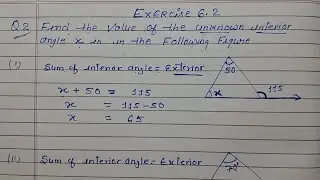 Exercise 6.2
Q.2 Find the value of the unknown interior
angle x in in the following figure
(i) Sum of interior angle = Exterior
50
x + 50 = 115
x 115
x = 115-50
x = 65
(ii) Sum of interior angle = Exterior
70